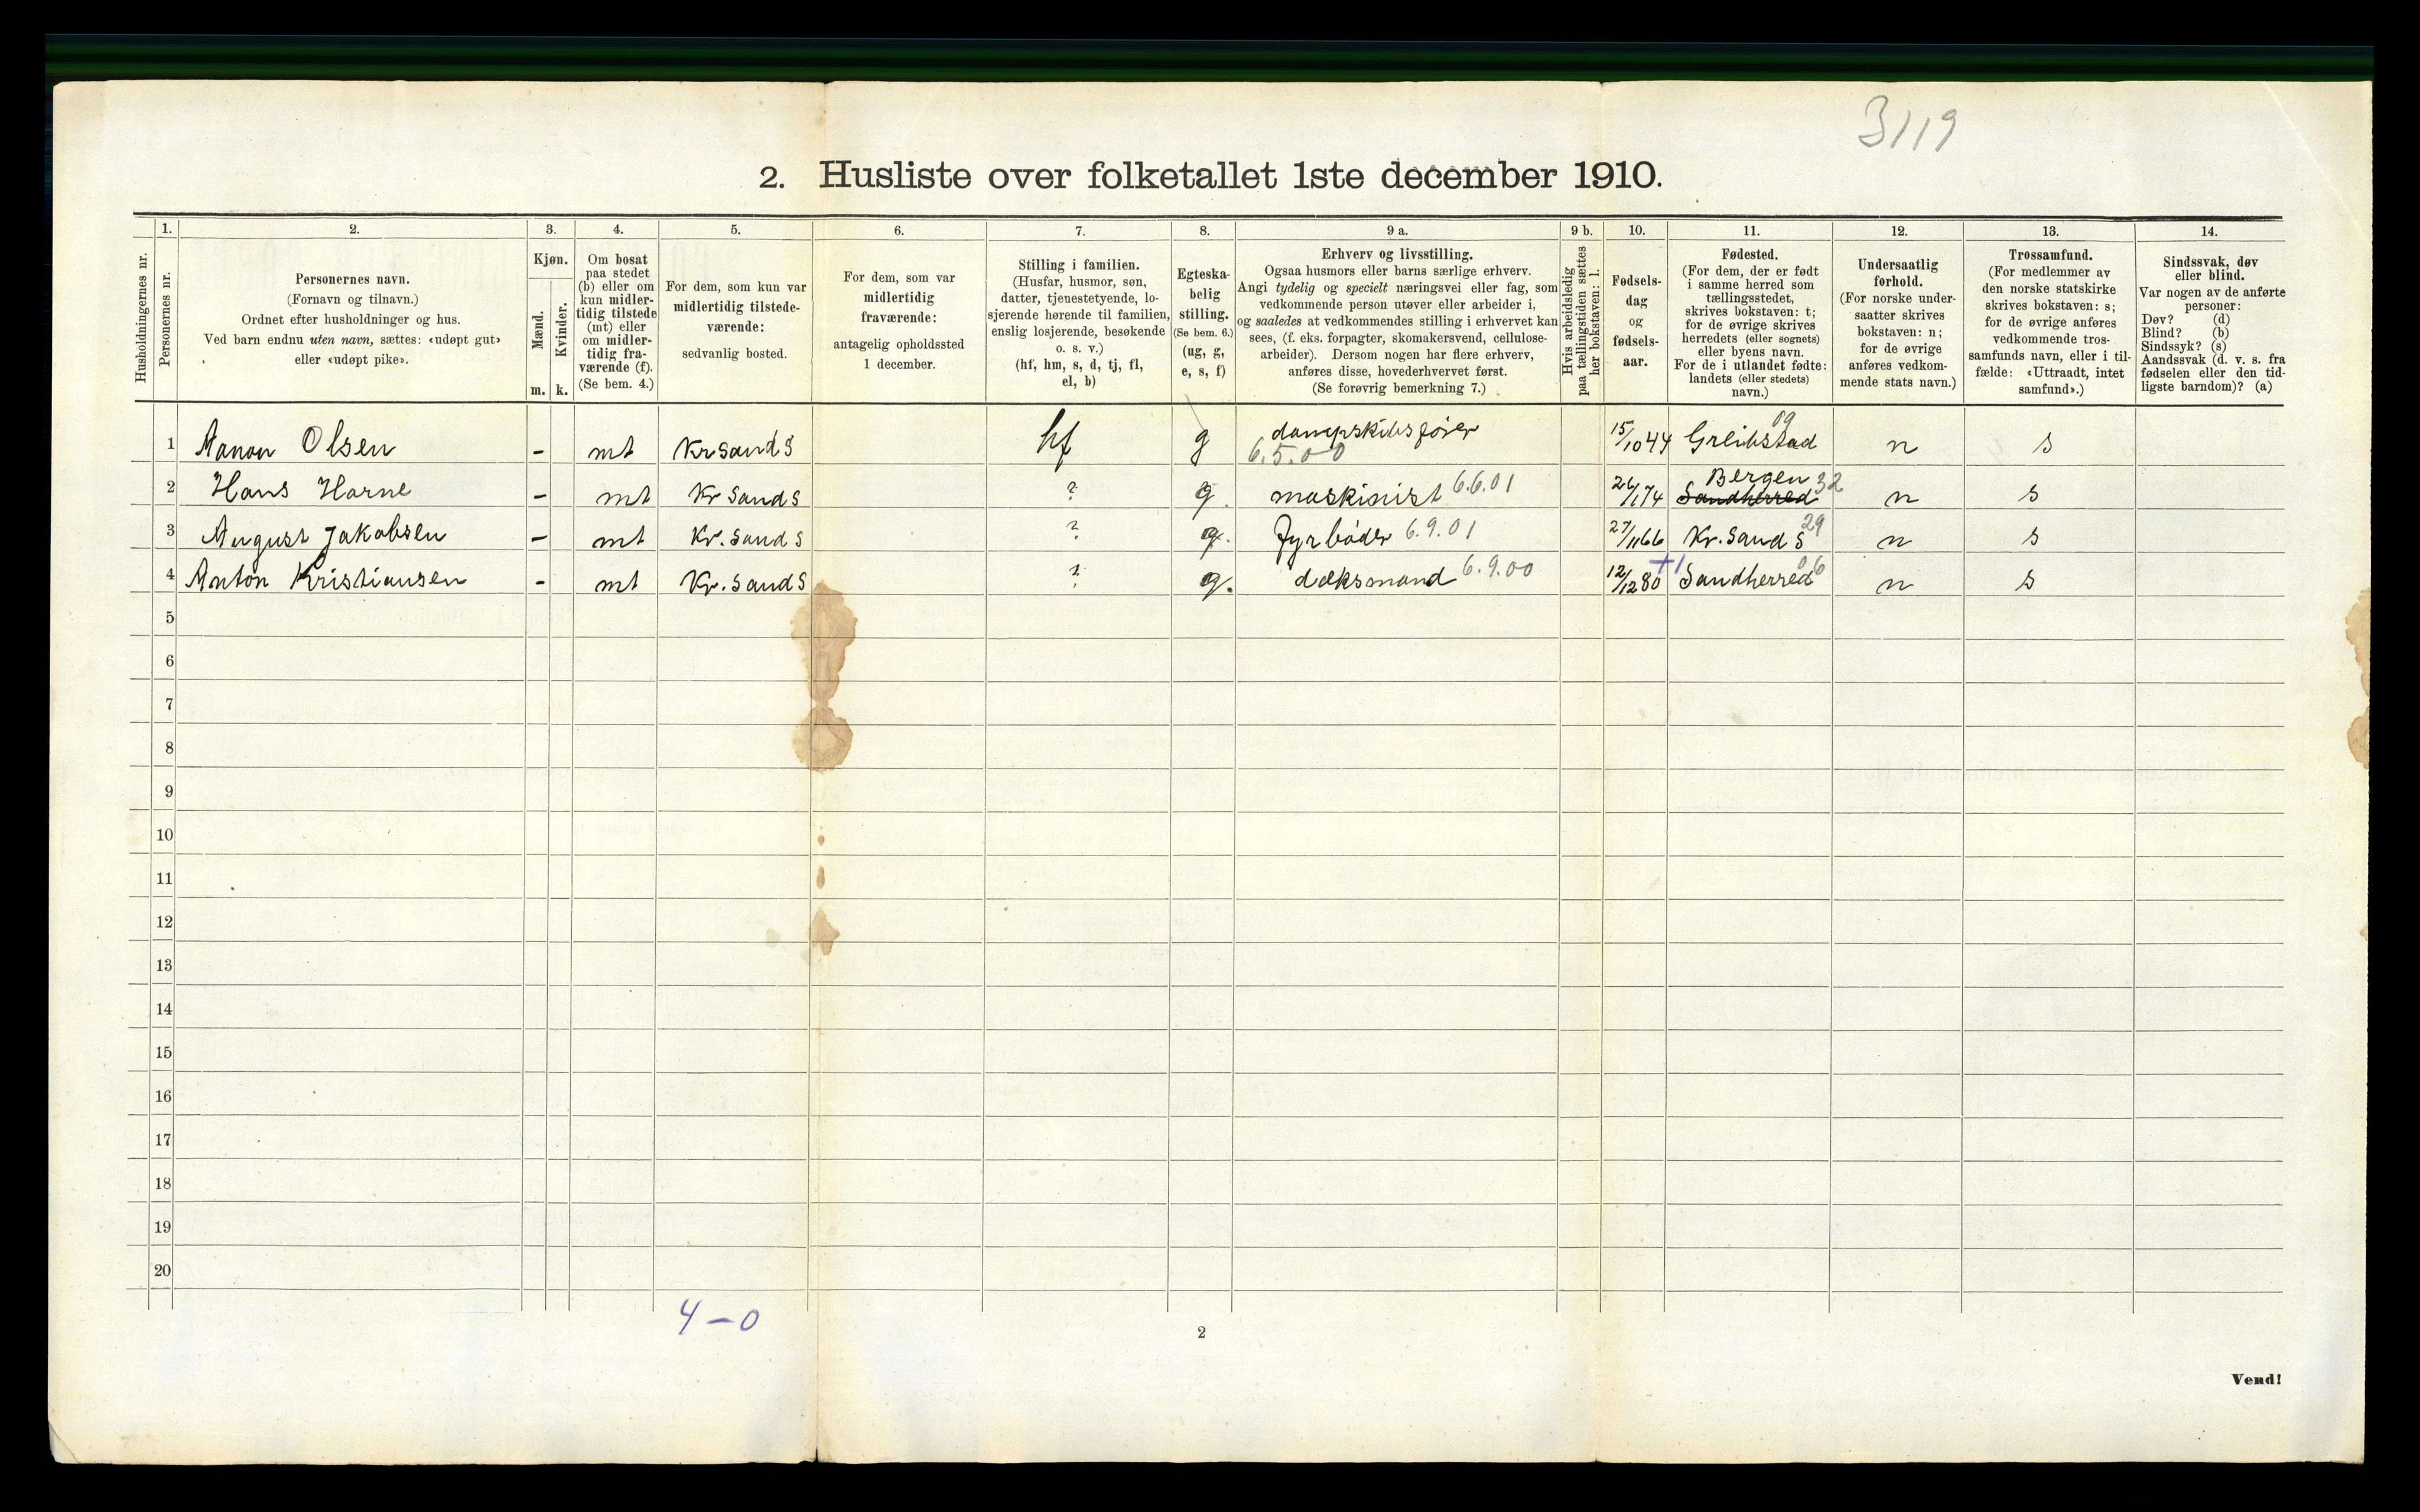 3119
2. Husliste over folketallet 1ste december 1910.
Husholdningernes nr.
1.
Personernes nr.
2.
Personernes navn.
(Fornavn og tilnavn.)
Ordnet efter husholdninger og hus.
Ved barn endnu uten navn, sættes: «udøpt gut»
eller «udøpt pike».
3.
Kjøn.
Mænd.
Kvinder.
m. k.
4.
Om bosat
paa stedet
(b) eller om
kun midler-
tidig tilstede
(mt) eller
om midler-
tidig fra-
værende (f).
(Se bem. 4.)
5.
For dem, som kun var
midlertidig tilstede-
værende:
sedvanlig bosted.
6.
For dem, som var
midlertidig
fraværende:
antagelig opholdssted
1 december.
7.
Stilling i familien.
(Husfar, husmor, søn,
datter, tjenestetyende, lo-
sjerende hørende til familien,
enslig losjerende, besøkende
o. s. v.)
(hf, hm, s, d, tj, fl,
el, b)
8.
Egteska-
belig
stilling.
(Se bem. 6.)
(ug, g,
e, s, f)
9 a.
Erhverv og livsstilling.
Ogsaa husmors eller barns særlige erhverv.
Angi tydelig og specielt næringsvei eller fag, som
vedkommende person utøver eller arbeider i,
og saaledes at vedkommendes stilling i erhvervet kan
sees, (f. eks. forpagter, skomakersvend, cellulose-
arbeider). Dersom nogen har flere erhverv,
anføres disse, hovederhvervet først.
(Se forøvrig bemerkning 7.)
9 b.
Hvis arbeidsledig
paa tællingstiden sættes
her bokstaven: l.
10.
Fødsels-
dag
og
fødsels-
aar.
11.
Fødested.
(For dem, der er født
i samme herred som
tællingsstedet,
skrives bokstaven: t;
for de øvrige skrives
herredets (eller sognets)
eller byens navn.
For de i utlandet fødte:
landets (eller stedets)
navn.)
12.
Undersaatlig
forhold.
(For norske under-
saatter skrives
bokstaven: n;
for de øvrige
anføres vedkom-
mende stats navn.)
13.
Trossamfund.
(For medlemmer av
den norske statskirke
skrives bokstaven: s;
for de øvrige anføres
vedkommende tros-
samfunds navn, eller i til-
fælde: «Uttraadt, intet
samfund».)
14.
Sindssvak, døv
eller blind.
Var nogen av de anførte
personer:
Døv? (d)
Blind? (b)
Sindssyk? (s)
Aandssvak (d. v. s. fra
fødselen eller den tid-
ligste barndom)? (a)
1 Aanon Olsen - mt Kr sand S hf g dampskibsfører 6.5.00 15/10 44 Greibstad 09 n s
2 Hans Horne - mt Kr sand S ? g. maskinist 6.6.01 26/1 74 Bergen 32 Sandherred n s
3 August Jakobsen - mt Kr. sand S ? g. Fyrbøder 6.9.01 27/11 66 Kr. sand S 29 n s
4 Anton Kristiansen - mt Kr. sand S ? g. dæksmand 6.9.00 12/12 80 +1 Sandherred 06 n s
5
6
7
8
9
10
11
12
13
14
15
16
17
18
19
20
4-0
2
Vend!